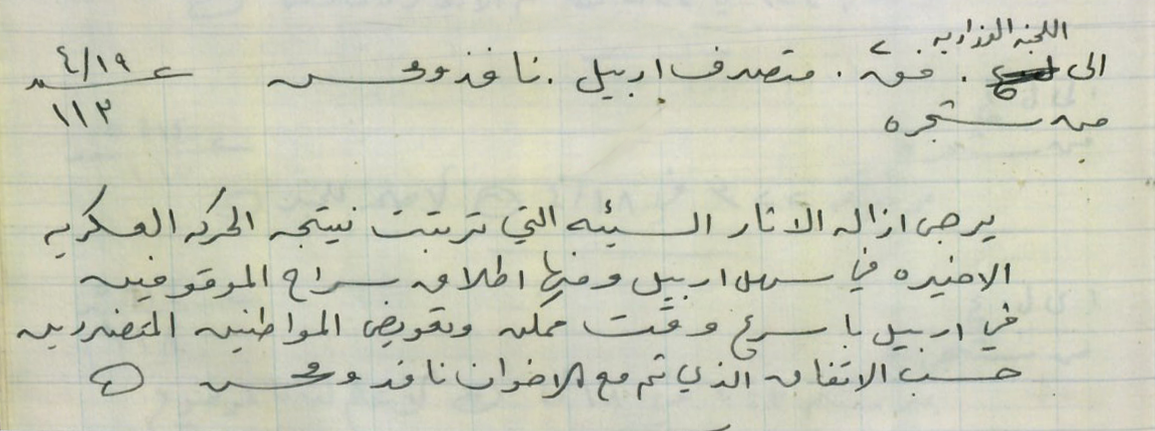 اللجنة الوزارية
الى . فق٢ . متصرف اربيل . نافذ ومحسن ٤/١٩
من شجره ١١٣
يرجى ازالة الاثار السيئه التي ترتبت نيتجه الحركه العسكريه
الاخيره في سهل اربيل ومنها اطلاق سراح الموقوفين
في اربيل باسرع وقت ممكن وتعويض المواطنين المتضررين
حسب الاتفاق الذي تم مع الاخوان نافذ ومحسن